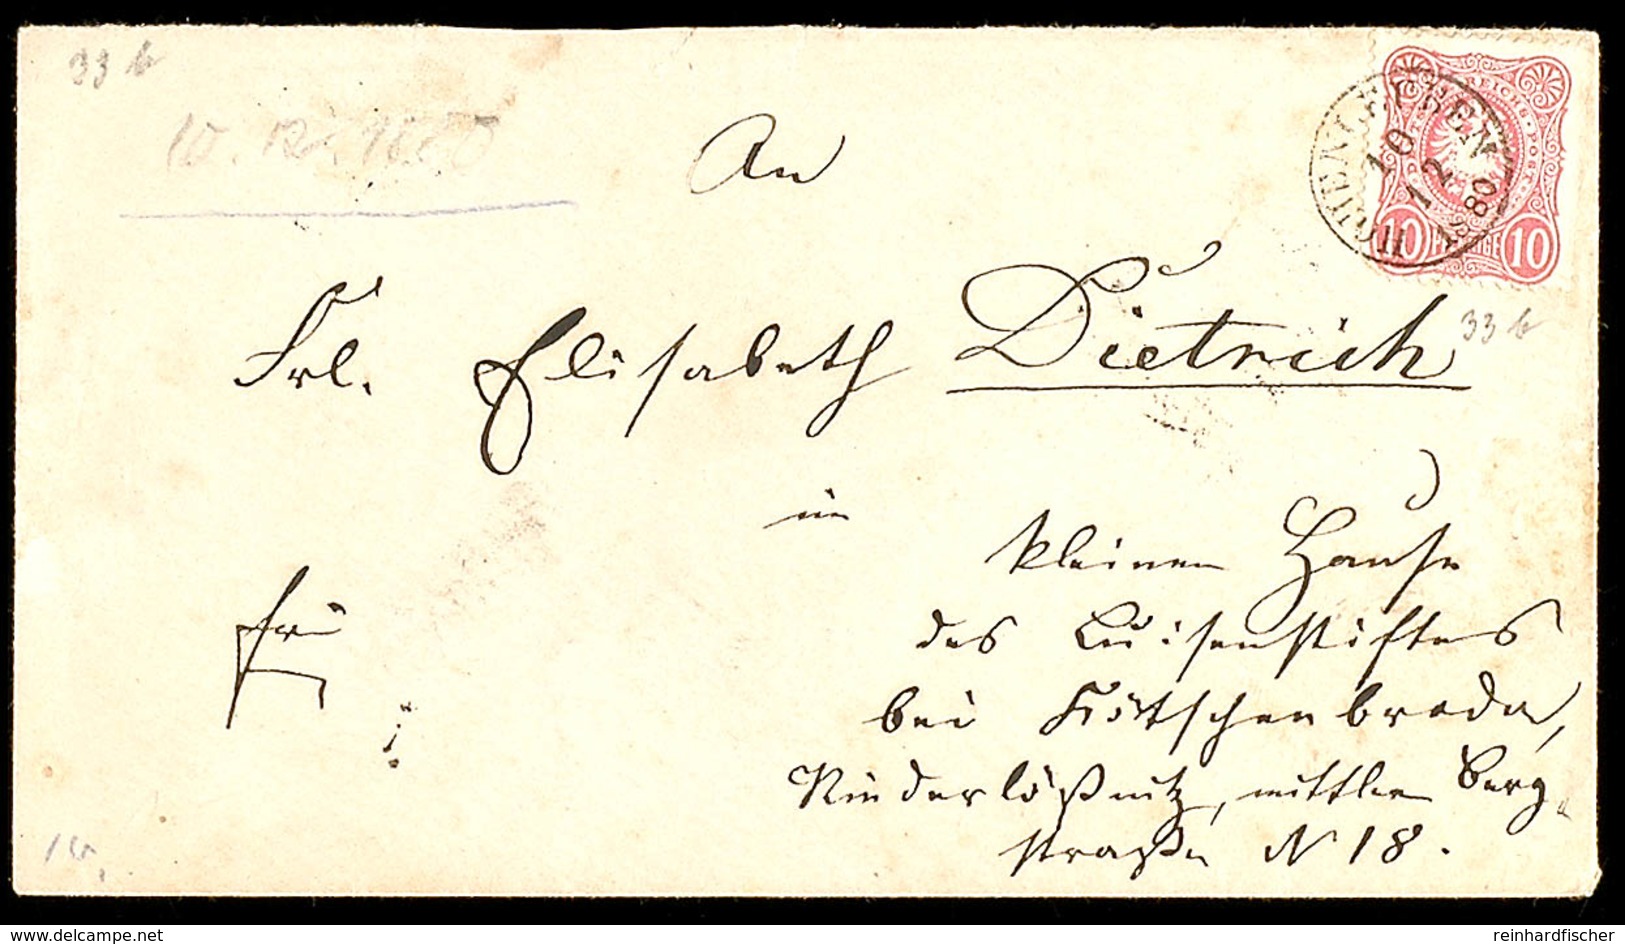 33 b
10. 12. 1880
An
REICHS-POST
HOHENLEUBEN
10
12
1880
10 PFENNIGE 10
Frl. Elisabeth Dietrich
33 b
im
kleinen Hause
frei
des Luisenstiftes
bei Kötschenbroda,
Niederlößnitz, mittlere Berg
straße N 18.
www.delcampe.net
reinhardfischer